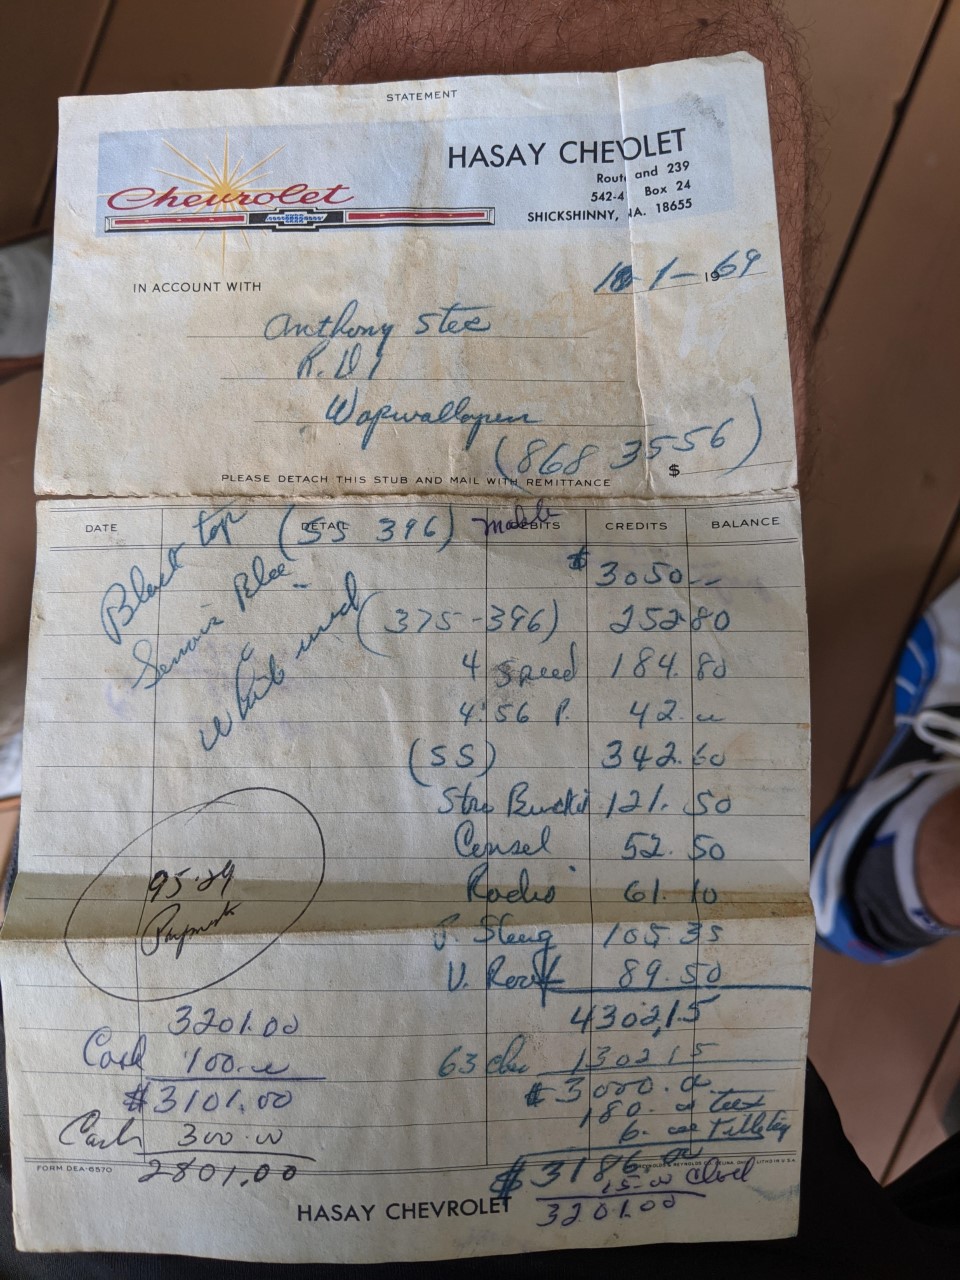 STATEMENT
Chevrolet
HASAY CHEVOLET
Rout and 239
542-4 Box 24
SHICKSHINNY, A. 18655
IN ACCOUNT WITH
10-1-1969
Anthony Stec
R.D 1
Wapwallopen
(868 3556)
PLEASE DETACH THIS STUB AND MAIL WITH REMITTANCE $
DATE DETAIL DEBITS CREDITS BALANCE
Black top (SS 396) Malibu
Blue
$ 3050--
(375-396) 252 80
4 Speed 184. 80
4:56 P. 42.
(SS) 342. 60
Stro Bucket 121. 50
Consel 52. 50
95.29 Radio 61. 10
Payments P. Steng 105.35
V. Roof 89.50
3201.00 4302.15
Cash 100. 63 1302 15
$3101.00 $3000.
180. tax
Cash 300.00 6.
2801.00 $3186.
FORM DEA-6570
15.00
HASAY CHEVROLET 3201.00